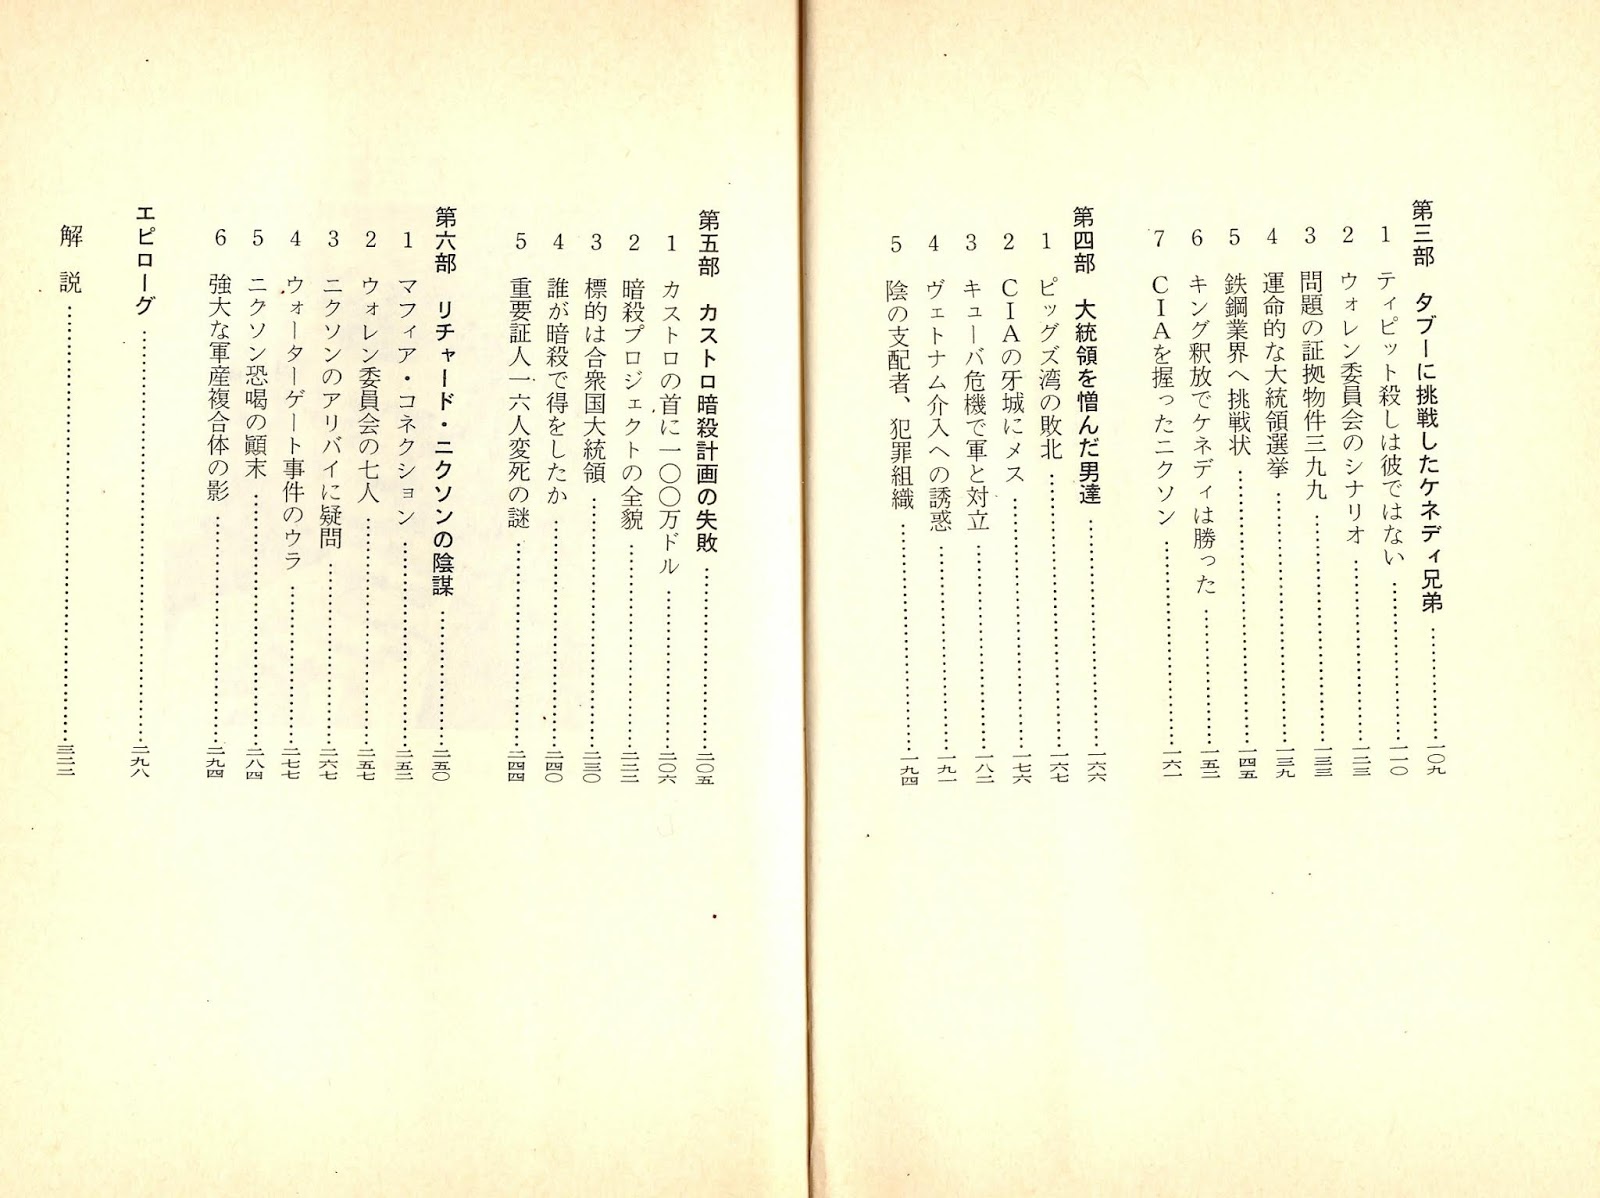 第三部　タブーに挑戦したケネディ兄弟……一〇九
1　ティピット殺しは彼ではない……一一〇
2　ウォレン委員会のシナリオ……一二三
3　問題の証拠物件三九九……一三三
4　運命的な大統領選挙……一三九
5　鉄鋼業界へ挑戦状……一四五
6　キング釈放でケネディは勝った……一五二
7　ＣＩＡを握ったニクソン……一六一
第四部　大統領を憎んだ男達……一六六
1　ピッグズ湾の敗北……一六七
2　ＣＩＡの牙城にメス……一七六
3　キューバ危機で軍と対立……一八二
4　ヴェトナム介入への誘惑……一九一
5　陰の支配者、犯罪組織……一九四
第五部　カストロ暗殺計画の失敗……二〇五
1　カストロの首に一〇〇万ドル……二〇六
2　暗殺プロジェクトの全貌……二二二
3　標的は合衆国大統領……二三〇
4　誰が暗殺で得をしたか……二四〇
5　重要証人一六人変死の謎……二四四
第六部　リチャード・ニクソンの陰謀……二五〇
1　マフィア・コネクション……二五二
2　ウォレン委員会の七人……二五七
3　ニクソンのアリバイに疑問……二六七
4　ウォーターゲート事件のウラ……二七七
5　ニクソン恐喝の顚末……二八四
6　強大な軍産複合体の影……二九四
エピローグ……二九八
解　説……三二二